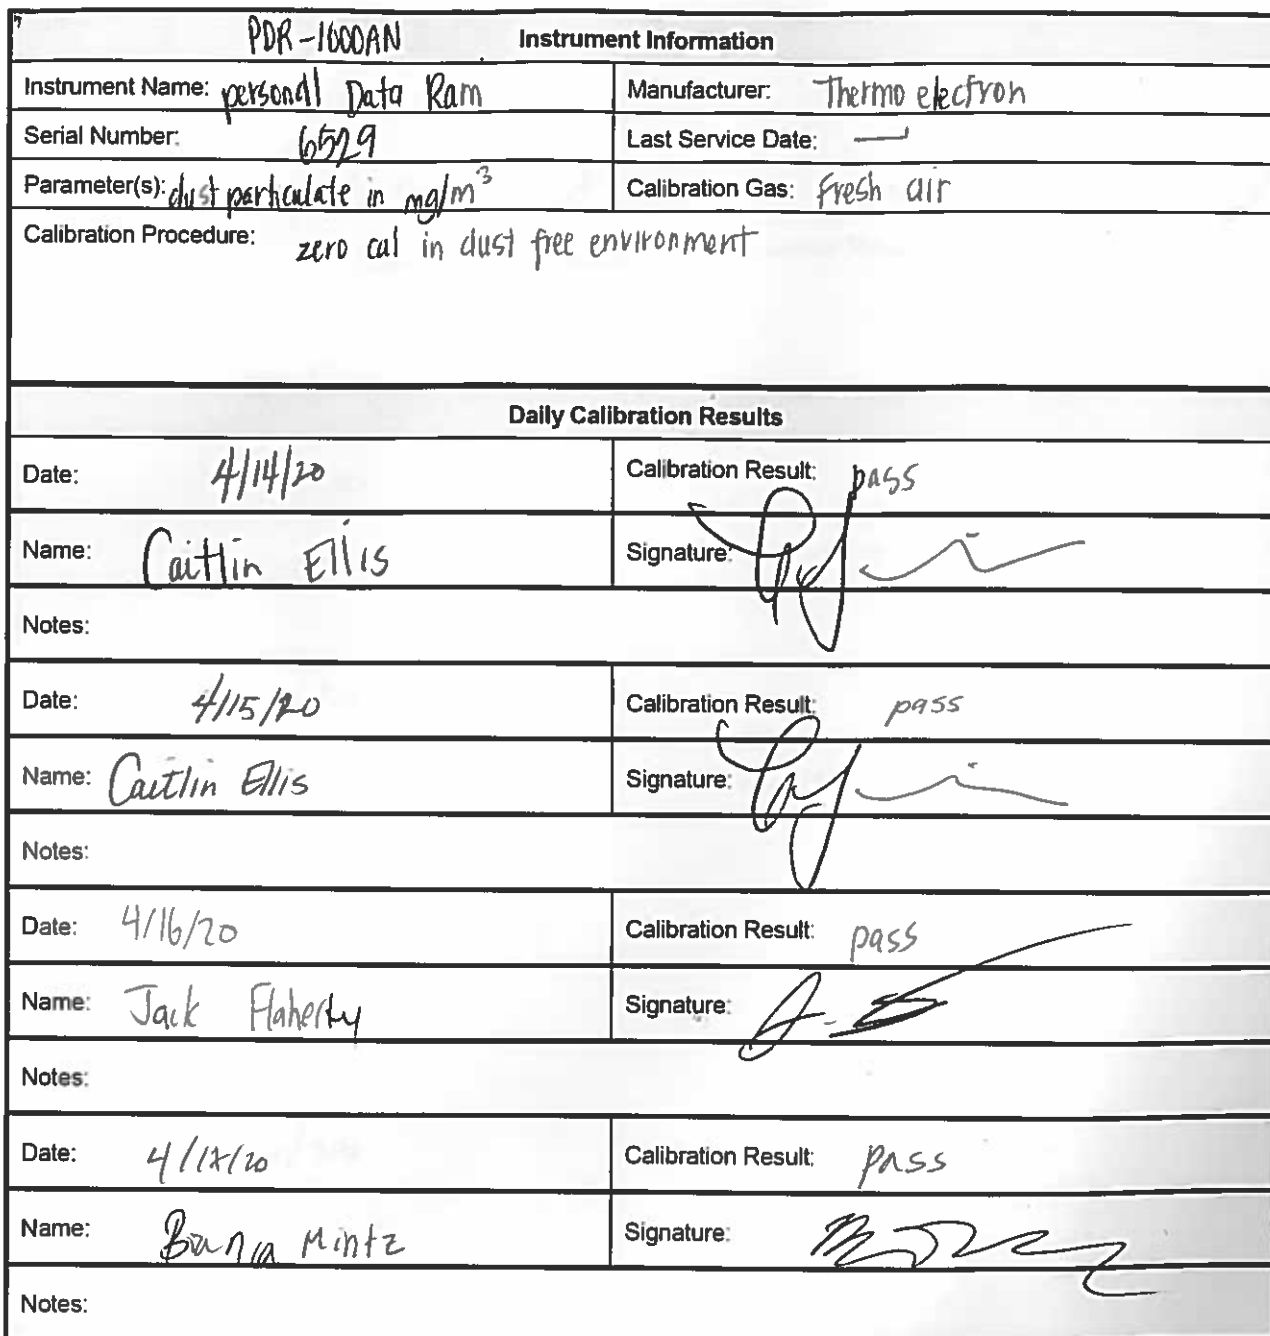 PDR-1000AN Instrument Information
Instrument Name: personal Data Ram Manufacturer: Thermo electron
Serial Number: 6529 Last Service Date: —
Parameter(s): dust particulate in mg/m³ Calibration Gas: Fresh air
Calibration Procedure: zero cal in dust free environment
Daily Calibration Results
Date: 4/14/20 Calibration Result: pass
Name: Caitlin Ellis Signature:
Notes:
Date: 4/15/20 Calibration Result: pass
Name: Caitlin Ellis Signature:
Notes:
Date: 4/16/20 Calibration Result: pass
Name: Jack Flaherty Signature:
Notes:
Date: Calibration Result: pass
Name: Mintz Signature:
Notes: